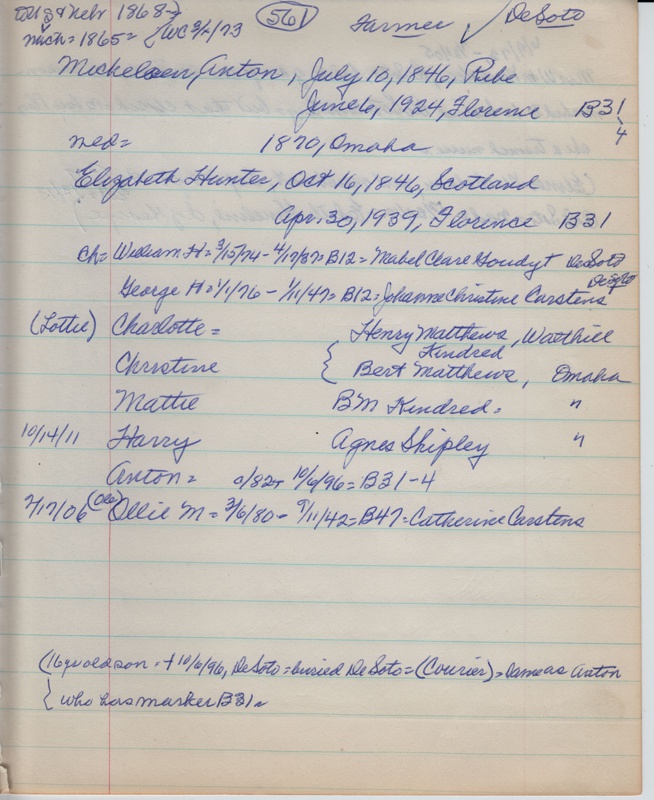 US & Nebr 1868 561 Farmer ✓ DeSoto
Mich = 1865 = WC 3/1/73
Mickelsen, Anton, July 10, 1846, Ribe
June 6, 1924, Florence B31
4
med = 1870, Omaha
Elizabeth Hunter, Oct 16, 1846, Scotland
Apr. 30, 1939, Florence B31
Ch = William H = 3/15/74 - 4/17/37 = B12 = Mabel Clare Goudyt DeSoto
DeSoto
George H = 1/1/76 - 1/11/47 = B12 = Johanne Christine Carstens
(Lottie) Charlotte = Henry Matthews, Walthill
Kindred
Christine { Bert Matthews, Omaha
Mattie BM Kindred = "
10/14/11 Harry Agnes Shipley "
Anton = 0/82 + 10/6/96 = B31-4
7/17/06 (Ole) Ollie M = 3/6/80 - 9/11/42 = B47 = Catherine Carstens
(16 yr old son = + 10/6/96, DeSoto = buried DeSoto = (Courier) = same as Anton
{ who has marker B31 =